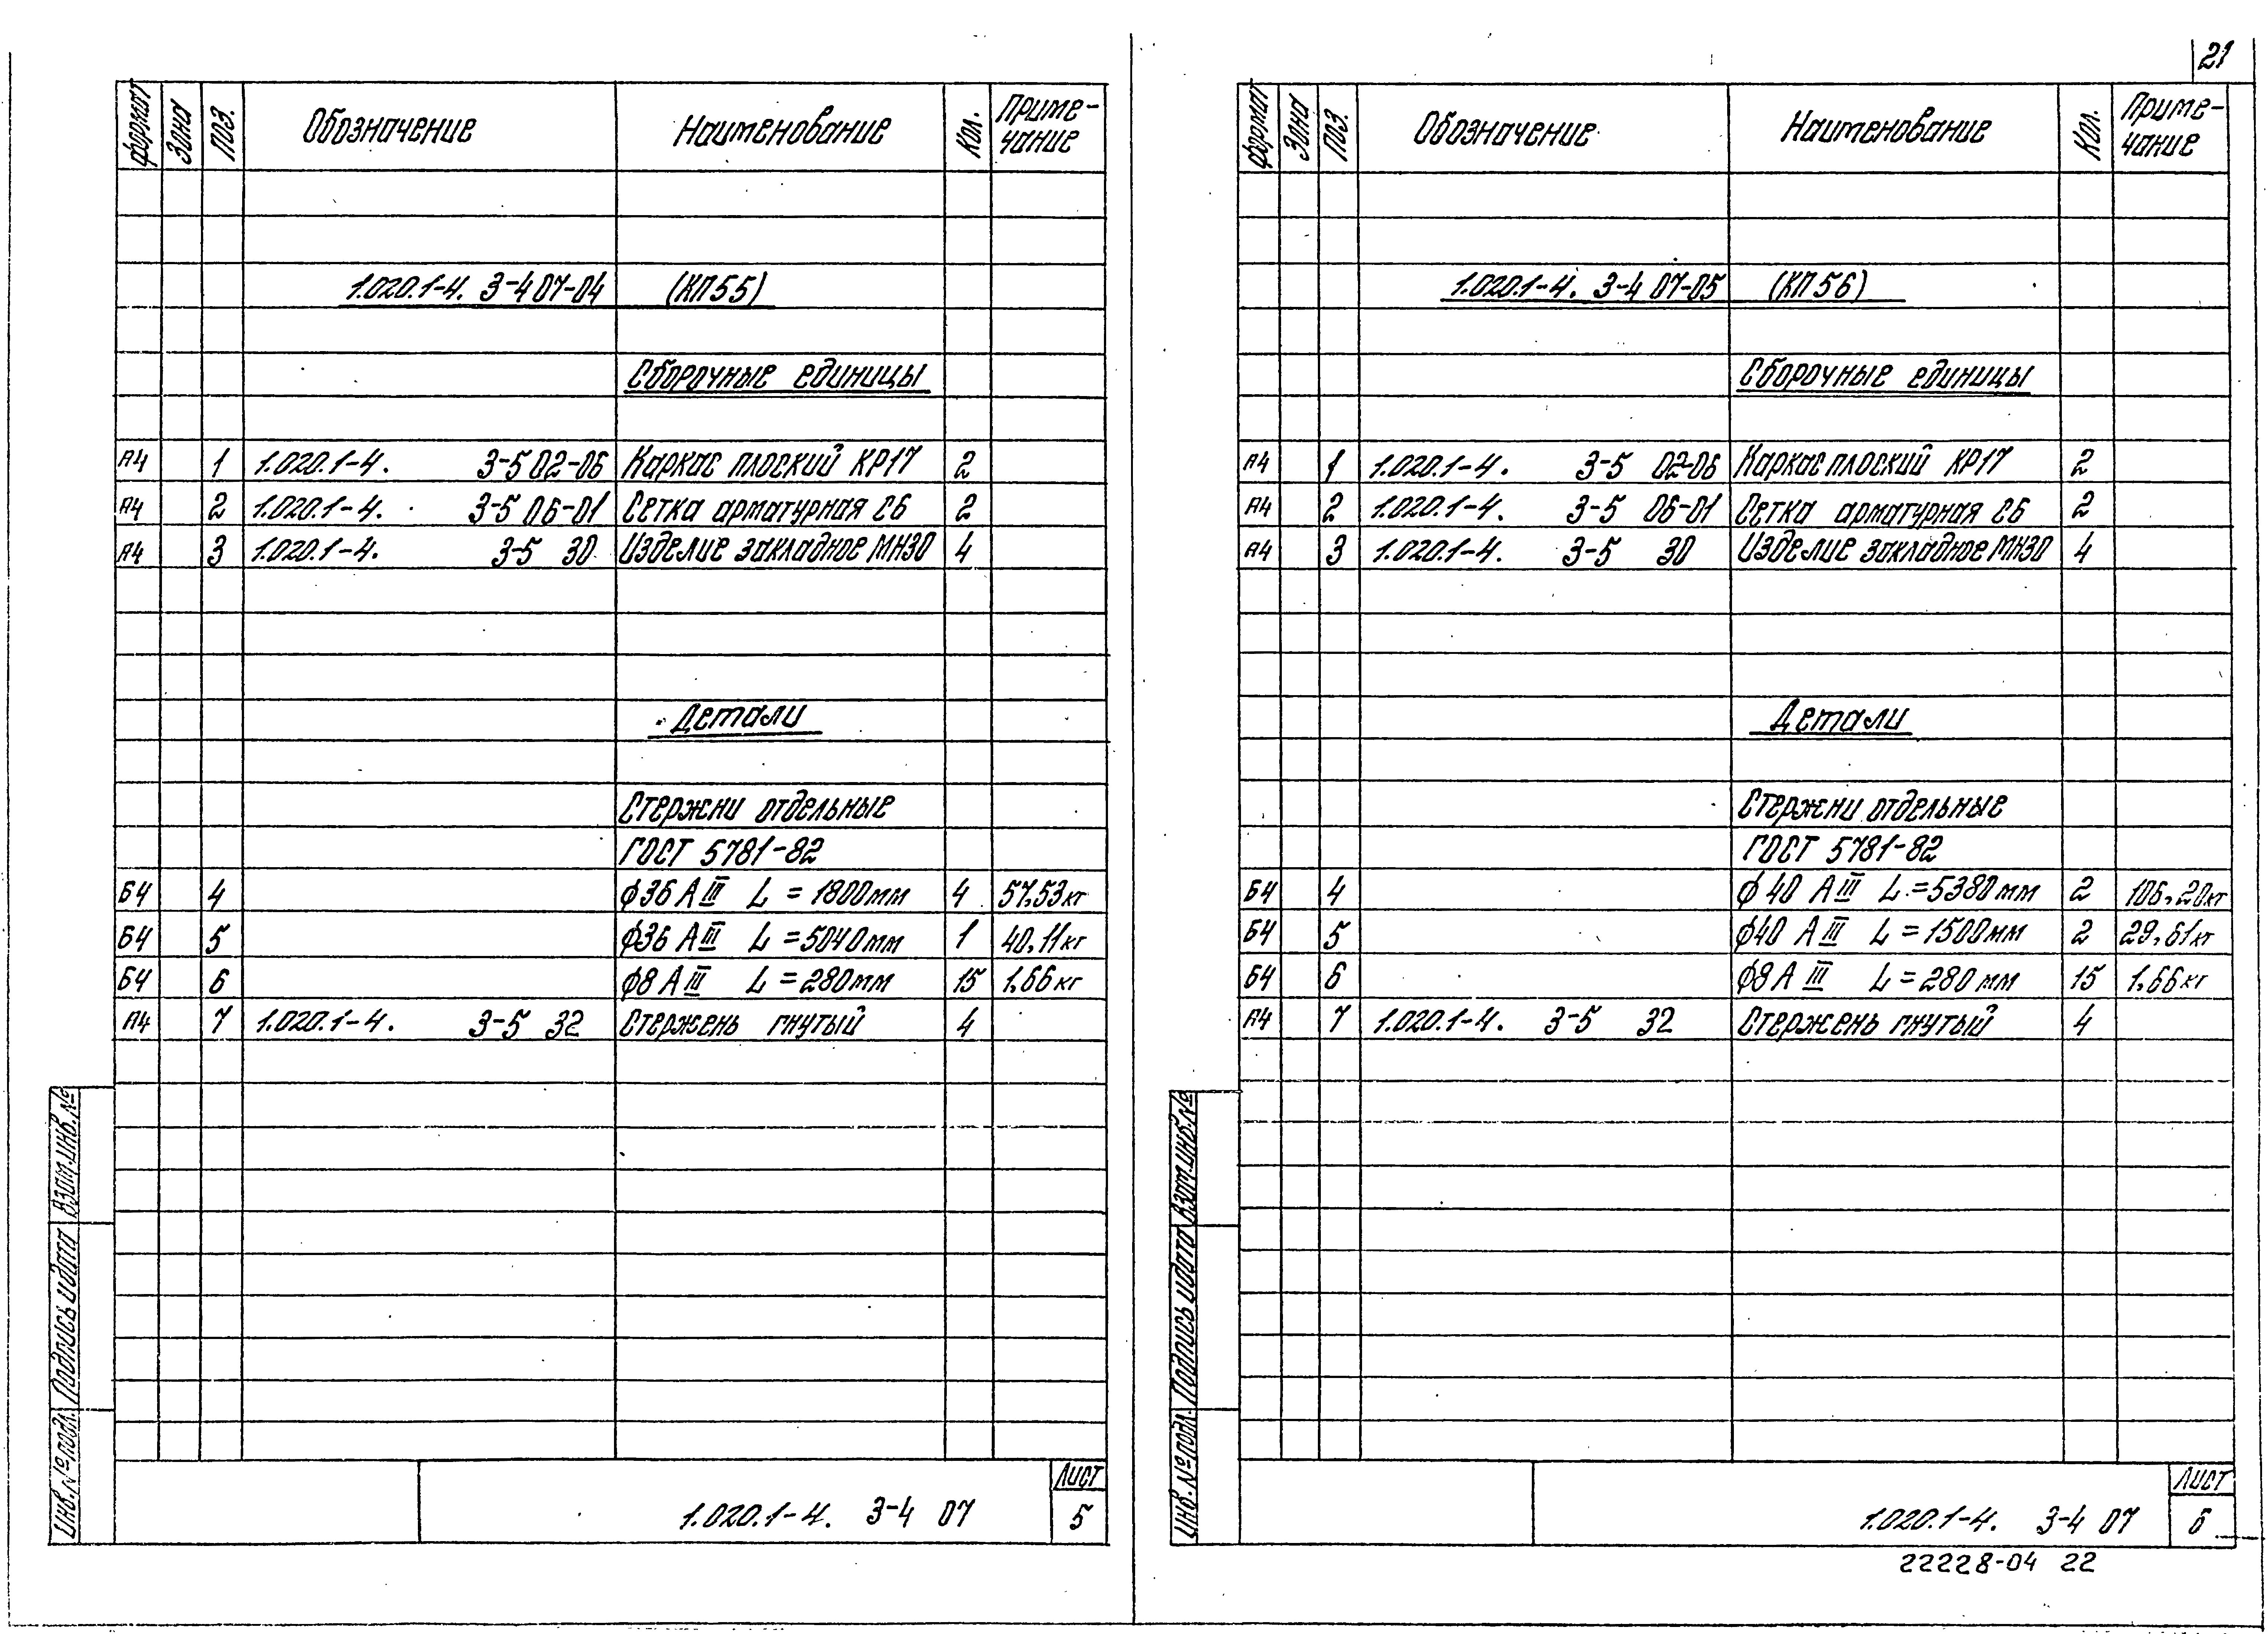 21
формат Зона Поз. Обозначение Наименование Кол. Приме-
чание
1.020.1-4. 3-4 07-04 (КП55)
Сборочные единицы
А4 1 1.020.1-4. 3-5 02-06 Каркас плоский КР17 2
А4 2 1.020.1-4. 3-5 06-01 Сетка арматурная С6 2
А4 3 1.020.1-4. 3-5 30 Изделие закладное МН30 4
Детали
Стержни отдельные
ГОСТ 5781-82
Б4 4 ф36 АIII L = 1800мм 4 57,53кг
Б4 5 ф36 АIII L = 5040мм 1 40,11кг
Б4 6 ф8 АIII L = 280мм 15 1,66кг
А4 7 1.020.1-4. 3-5 32 Стержень гнутый 4
Взам.инв.№
Подпись и дата
Инв.№подл.
1.020.1-4. 3-4 07
Лист
5
формат Зона Поз. Обозначение Наименование Кол. Приме-
чание
1.020.1-4. 3-4 07-05 (КП56)
Сборочные единицы
А4 1 1.020.1-4. 3-5 02-06 Каркас плоский КР17 2
А4 2 1.020.1-4. 3-5 06-01 Сетка арматурная С6 2
А4 3 1.020.1-4. 3-5 30 Изделие закладное МН30 4
Детали
Стержни отдельные
ГОСТ 5781-82
Б4 4 ф40 АIII L = 5380мм 2 106,20кг
Б4 5 ф40 АIII L = 1500мм 2 29,61кг
Б4 6 ф8 АIII L = 280мм 15 1,66кг
А4 7 1.020.1-4. 3-5 32 Стержень гнутый 4
Взам.инв.№
Подпись и дата
Инв.№подл.
1.020.1-4. 3-4 07
Лист
6
22228-04 22